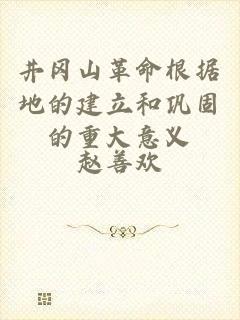 井冈山革命根据
地的建立和巩固
的重大意义
赵善欢